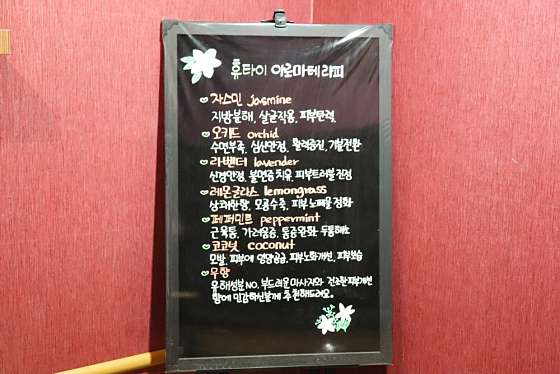 휴타이 아로마테라피
자스민 jasmine
지방분해, 살균작용, 피부탄력
오키드 orchid
수면부족, 심신안정, 활력증진, 기분전환
라벤더 lavender
신경안정, 불면증치유, 피부트러블 진정
레몬글라스 lemongrass
상쾌한향, 모공수축, 피부 노폐물 정화
페퍼민트 peppermint
근육통, 가려움증, 통증완화, 두통해소
코코넛 coconut
모발, 피부에 영양공급, 피부노화개선, 피부보습
무향
유해성분 NO, 부드러운마사지와 건조한피부개선
향에 민감하신분께 추천해드려요.